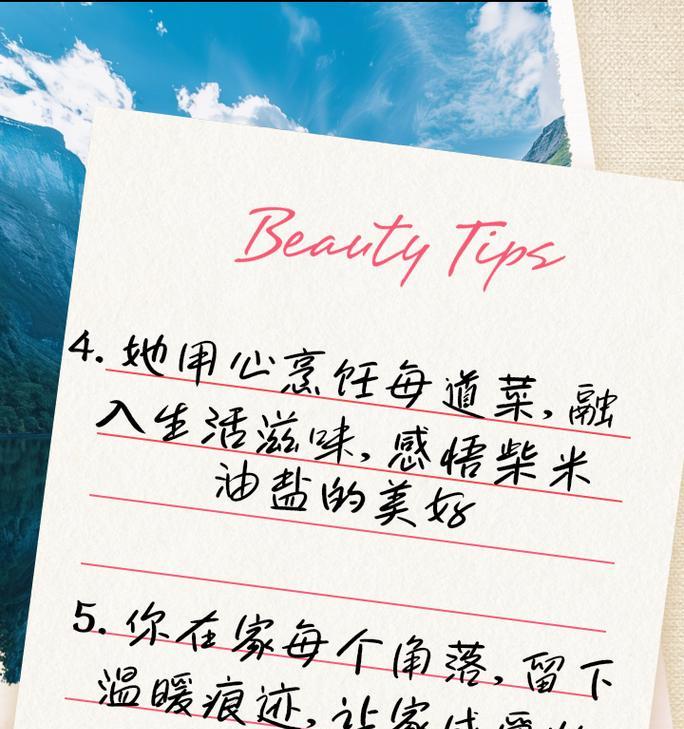 Beauty Tips
4. 她用心烹饪每道菜,融
入生活滋味,感悟柴米
油盐的美好
5. 你在家每个角落,留下
温暖痕迹,让家